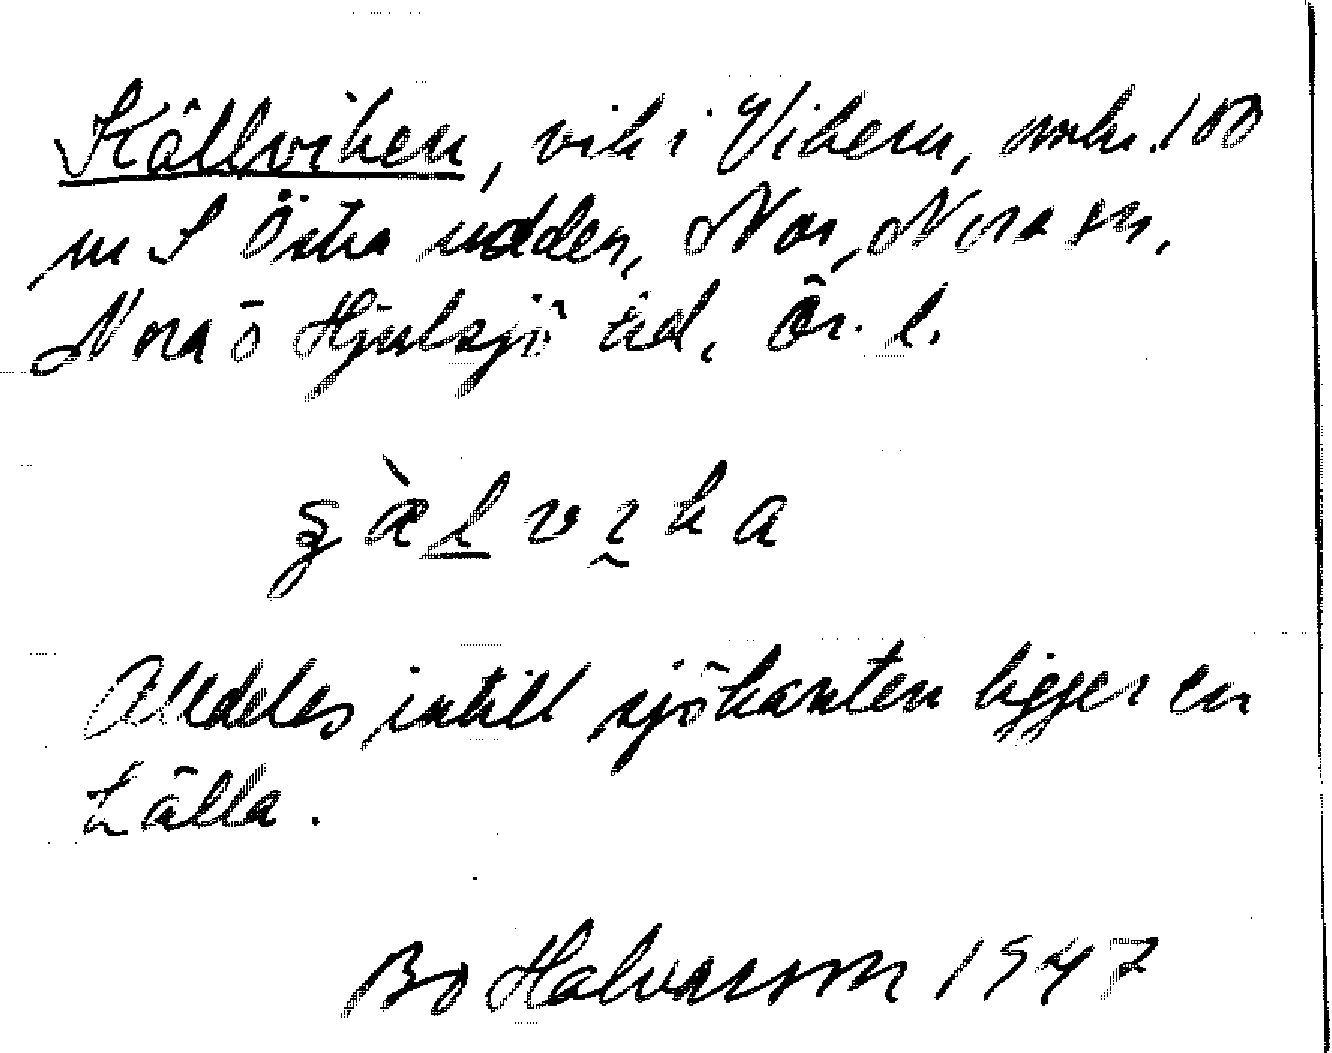 Källviken, vik i Vikern, omkr. 100
m S Östra udden, Nor, Nora sn,
Nora o Hjulsjö hd, Ör. l.
Alldeles intill sjökanten ligger en
källa.
Bo Halvarson 1947